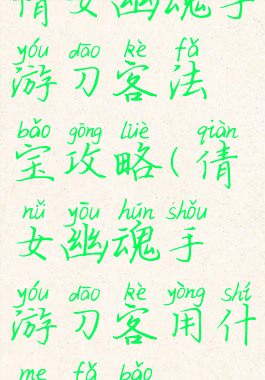 倩女幽魂手
yóu dāo kè fǎ
游刀客法
bǎo gōng lüè qiàn
宝攻略(倩
nǚ yōu hún shǒu
女幽魂手
yóu dāo kè yòng shí
游刀客用什
me fǎ bǎo